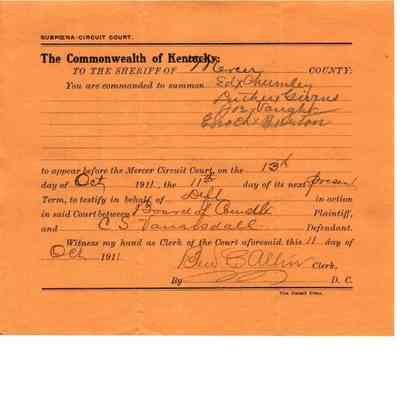 SUBPŒNA-CIRCUIT COURT.
The Commonwealth of Kentucky:
TO THE SHERIFF OF Mercer COUNTY:
You are commanded to summon Ed x Chumley
Dickey Givens
Joe Vaught
Enoch x
to appear before the Mercer Circuit Court, on the 13th
day of Oct 1911, the 11th day of its next present
Term, to testify in behalf of Deft in action
in said Court between Board of Plaintiff,
and C S Vanarsdall Defendant.
Witness my hand as Clerk of the Court aforesaid, this 11 day of
Oct 1911.
Geo C Allin Clerk,
By D. C.